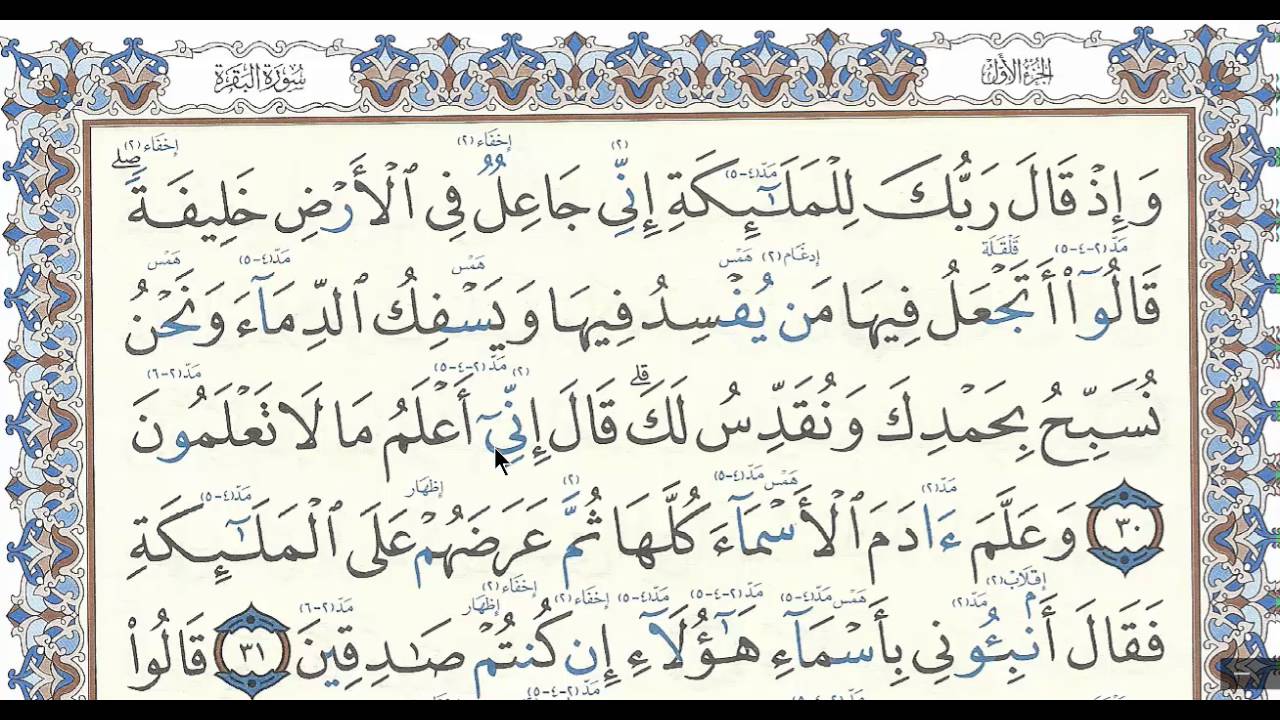 الجزء الأول
سورة البقرة
إخفاء (٢) (٢) إخفاء (٢)
مد (٤-٥)
وَإِذْ قَالَ رَبُّكَ لِلْمَلَـٰٓئِكَةِ إِنِّى جَاعِلٌ فِى ٱلْأَرْضِ خَلِيفَةً ۖ
مد (٢-٤-٥) قلقلة إدغام (٢) همس همس مد (٤-٥) همس
قَالُوٓا۟ أَتَجْعَلُ فِيهَا مَن يُفْسِدُ فِيهَا وَيَسْفِكُ ٱلدِّمَآءَ وَنَحْنُ
(٢) مد (٢-٤-٥) مد (٢-٦)
نُسَبِّحُ بِحَمْدِكَ وَنُقَدِّسُ لَكَ ۖ قَالَ إِنِّىٓ أَعْلَمُ مَا لَا تَعْلَمُونَ
مد (٢) همس مد (٤-٥) (٢) إظهار مد (٤-٥)
٣٠ وَعَلَّمَ ءَادَمَ ٱلْأَسْمَآءَ كُلَّهَا ثُمَّ عَرَضَهُمْ عَلَى ٱلْمَلَـٰٓئِكَةِ
إقلاب (٢) مد (٢) همس مد (٤-٥) مد (٢-٤-٥) مد (٤-٥) إخفاء (٢) إخفاء (٢) إظهار مد (٢-٦)
فَقَالَ أَنۢبِـُٔونِى بِأَسْمَآءِ هَـٰٓؤُلَآءِ إِن كُنتُمْ صَـٰدِقِينَ ٣١ قَالُوا۟
مد (٢-٤-٥)